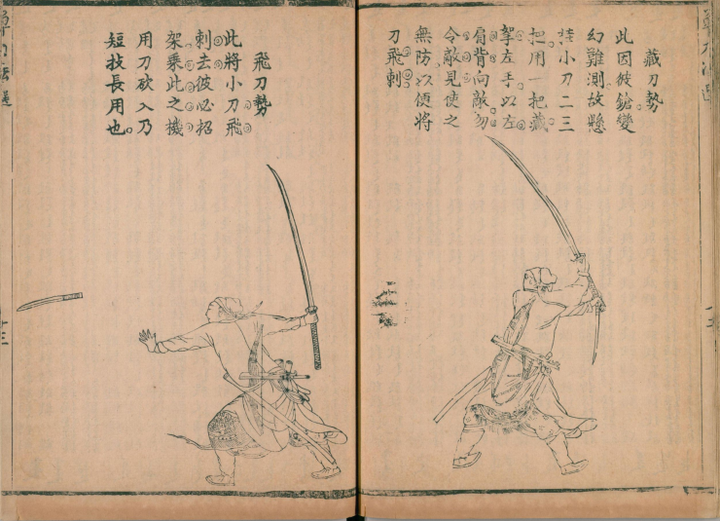 藏刀勢
此因彼鎗變
幻難測故懸
挂小刀二三
把用一把藏
挐左手以左
肩背向敵勿
令敵見使之
無防以便將
刀飛刺
飛刀勢
此將小刀飛
刺去彼必招
架乘此之機
用刀砍入乃
短技長用也
十三